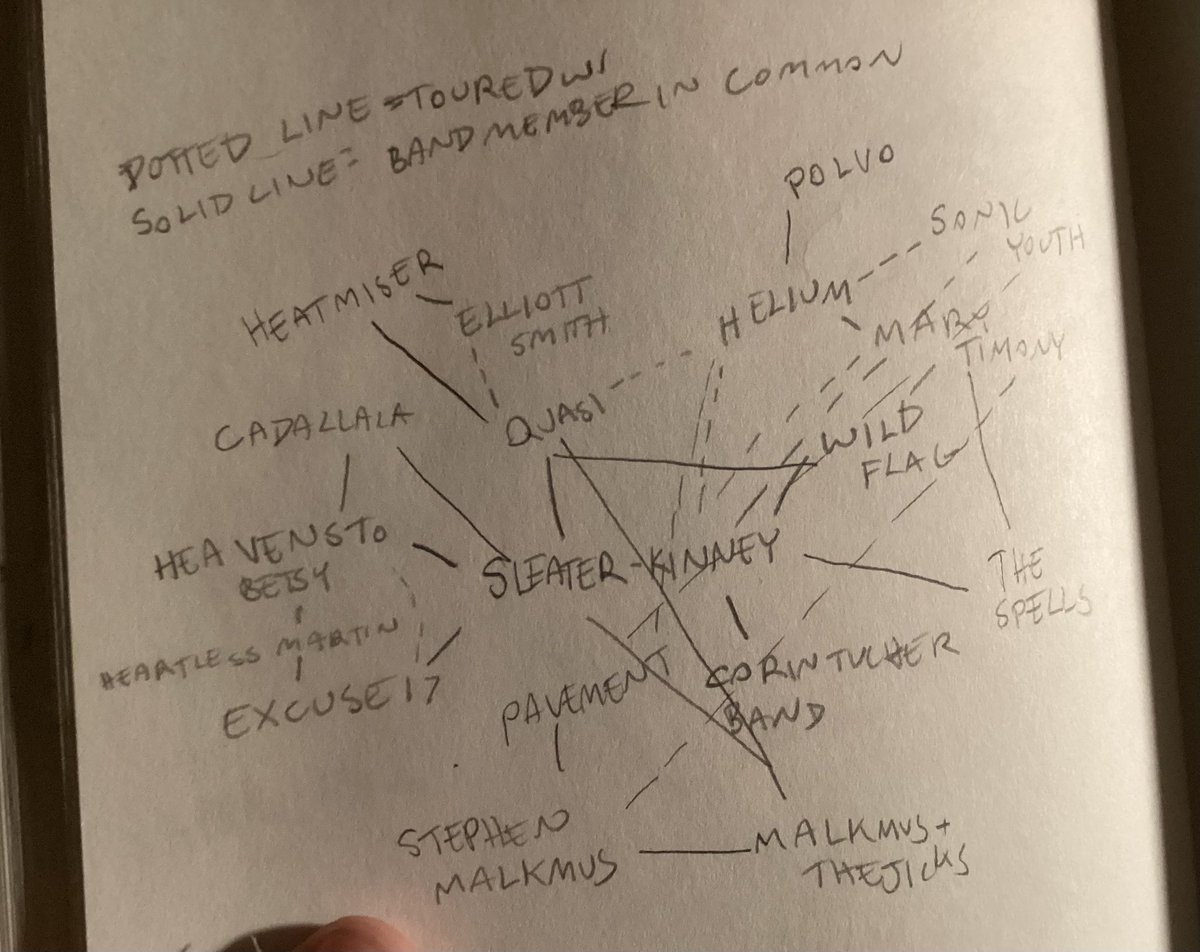 DOTTED LINE = TOURED W/
SOLID LINE = BAND MEMBER IN COMMON
POLVO
SONIC
YOUTH
HEATMISER
ELLIOTT
SMITH
HELIUM
MARY
TIMONY
CADALLALA
QUASI
WILD
FLAG
HEAVENS TO
BETSY
SLEATER-KINNEY
THE
SPELLS
HEARTLESS MARTIN
EXCUSE 17
PAVEMENT
CORIN TUCKER
BAND
STEPHEN
MALKMUS
MALKMUS +
THE JICKS